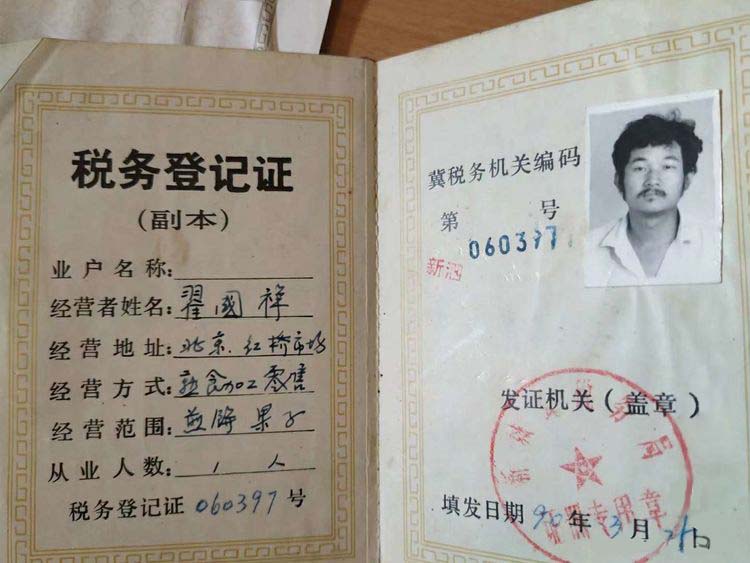 税务登记证
(副本)
业户名称:
经营者姓名: 翟國祥
经营地址: 北京.红桥市场
经营方式: 熟食加工零售
经营范围: 煎饼果子
从业人数: 1人
税务登记证 060397 号
冀税务机关编码
第 号
060397
新
发证机关(盖章)
专用章
填发日期 90年3月21日